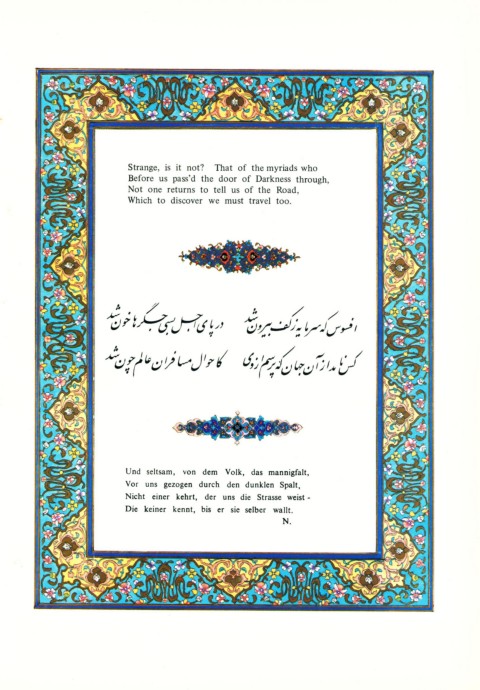 Strange, is it not? That of the myriads who
Before us pass'd the door of Darkness through,
Not one returns to tell us of the Road,
Which to discover we must travel too.
افسوس که سرمایه ز کف بیرون شد در پای اجل بسی جگرها خون شد
کس نامد از آن جهان که پرسم از وی کاحوال مسافران عالم چون شد
Und seltsam, von dem Volk, das mannigfalt,
Vor uns gezogen durch den dunklen Spalt,
Nicht einer kehrt, der uns die Strasse weist -
Die keiner kennt, bis er sie selber wallt.
N.